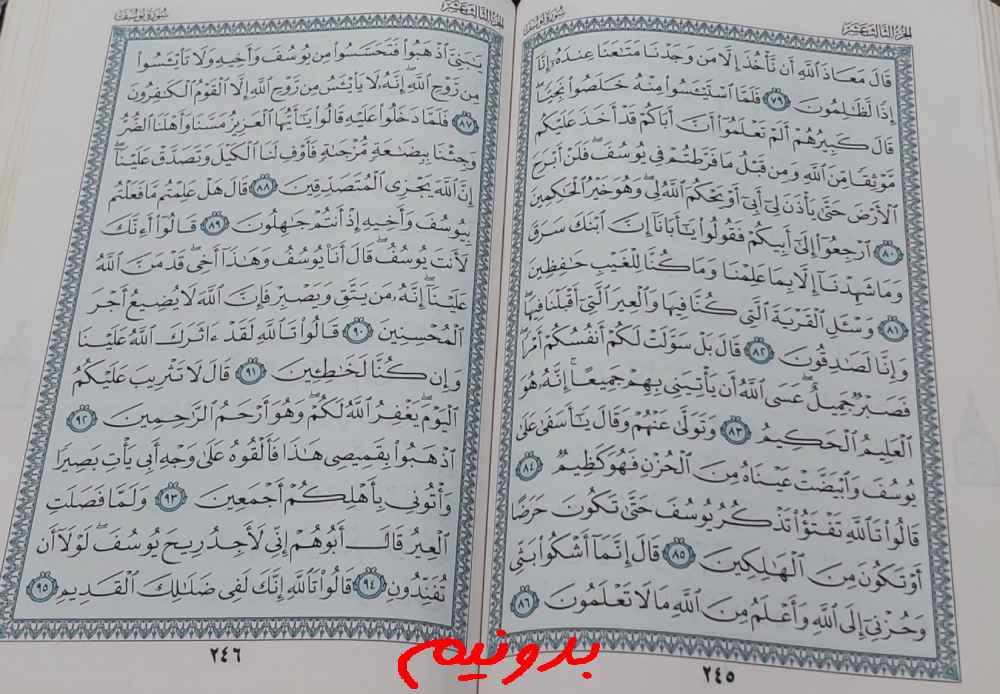 الجزء الثالث عشر
سورة يوسف
قَالَ مَعَاذَ اللَّهِ أَن نَّأْخُذَ إِلَّا مَن وَجَدْنَا مَتَاعَنَا عِندَهُ إِنَّا
إِذًا لَّظَالِمُونَ ٧٩ فَلَمَّا اسْتَيْئَسُوا مِنْهُ خَلَصُوا نَجِيًّا
قَالَ كَبِيرُهُمْ أَلَمْ تَعْلَمُوا أَنَّ أَبَاكُمْ قَدْ أَخَذَ عَلَيْكُم
مَّوْثِقًا مِّنَ اللَّهِ وَمِن قَبْلُ مَا فَرَّطتُمْ فِي يُوسُفَ فَلَنْ أَبْرَحَ
الْأَرْضَ حَتَّىٰ يَأْذَنَ لِي أَبِي أَوْ يَحْكُمَ اللَّهُ لِي وَهُوَ خَيْرُ الْحَاكِمِينَ
٨٠ ارْجِعُوا إِلَىٰ أَبِيكُمْ فَقُولُوا يَا أَبَانَا إِنَّ ابْنَكَ سَرَقَ
وَمَا شَهِدْنَا إِلَّا بِمَا عَلِمْنَا وَمَا كُنَّا لِلْغَيْبِ حَافِظِينَ
٨١ وَسْئَلِ الْقَرْيَةَ الَّتِي كُنَّا فِيهَا وَالْعِيرَ الَّتِي أَقْبَلْنَا فِيهَا
وَإِنَّا لَصَادِقُونَ ٨٢ قَالَ بَلْ سَوَّلَتْ لَكُمْ أَنفُسُكُمْ أَمْرًا
فَصَبْرٌ جَمِيلٌ عَسَى اللَّهُ أَن يَأْتِيَنِي بِهِمْ جَمِيعًا إِنَّهُ هُوَ
الْعَلِيمُ الْحَكِيمُ ٨٣ وَتَوَلَّىٰ عَنْهُمْ وَقَالَ يَا أَسَفَىٰ عَلَىٰ
يُوسُفَ وَابْيَضَّتْ عَيْنَاهُ مِنَ الْحُزْنِ فَهُوَ كَظِيمٌ ٨٤
قَالُوا تَاللَّهِ تَفْتَؤُا تَذْكُرُ يُوسُفَ حَتَّىٰ تَكُونَ حَرَضًا
أَوْ تَكُونَ مِنَ الْهَالِكِينَ ٨٥ قَالَ إِنَّمَا أَشْكُوا بَثِّي
وَحُزْنِي إِلَى اللَّهِ وَأَعْلَمُ مِنَ اللَّهِ مَا لَا تَعْلَمُونَ ٨٦
٢٤٥
الجزء الثالث عشر
سورة يوسف
يَا بَنِيَّ اذْهَبُوا فَتَحَسَّسُوا مِن يُوسُفَ وَأَخِيهِ وَلَا تَايْئَسُوا
مِن رَّوْحِ اللَّهِ إِنَّهُ لَا يَايْئَسُ مِن رَّوْحِ اللَّهِ إِلَّا الْقَوْمُ الْكَافِرُونَ
٨٧ فَلَمَّا دَخَلُوا عَلَيْهِ قَالُوا يَا أَيُّهَا الْعَزِيزُ مَسَّنَا وَأَهْلَنَا الضُّرُّ
وَجِئْنَا بِبِضَاعَةٍ مُّزْجَاةٍ فَأَوْفِ لَنَا الْكَيْلَ وَتَصَدَّقْ عَلَيْنَا
إِنَّ اللَّهَ يَجْزِي الْمُتَصَدِّقِينَ ٨٨ قَالَ هَلْ عَلِمْتُم مَّا فَعَلْتُم
بِيُوسُفَ وَأَخِيهِ إِذْ أَنتُمْ جَاهِلُونَ ٨٩ قَالُوا أَءِنَّكَ
لَأَنتَ يُوسُفُ قَالَ أَنَا يُوسُفُ وَهَٰذَا أَخِي قَدْ مَنَّ اللَّهُ
عَلَيْنَا إِنَّهُ مَن يَتَّقِ وَيَصْبِرْ فَإِنَّ اللَّهَ لَا يُضِيعُ أَجْرَ
الْمُحْسِنِينَ ٩٠ قَالُوا تَاللَّهِ لَقَدْ ءَاثَرَكَ اللَّهُ عَلَيْنَا
وَإِن كُنَّا لَخَاطِئِينَ ٩١ قَالَ لَا تَثْرِيبَ عَلَيْكُمُ
الْيَوْمَ يَغْفِرُ اللَّهُ لَكُمْ وَهُوَ أَرْحَمُ الرَّاحِمِينَ ٩٢
اذْهَبُوا بِقَمِيصِي هَٰذَا فَأَلْقُوهُ عَلَىٰ وَجْهِ أَبِي يَأْتِ بَصِيرًا
وَأْتُونِي بِأَهْلِكُمْ أَجْمَعِينَ ٩٣ وَلَمَّا فَصَلَتِ
الْعِيرُ قَالَ أَبُوهُمْ إِنِّي لَأَجِدُ رِيحَ يُوسُفَ لَوْلَا أَن
تُفَنِّدُونِ ٩٤ قَالُوا تَاللَّهِ إِنَّكَ لَفِي ضَلَالِكَ الْقَدِيمِ ٩٥
٢٤٦
بدونیم